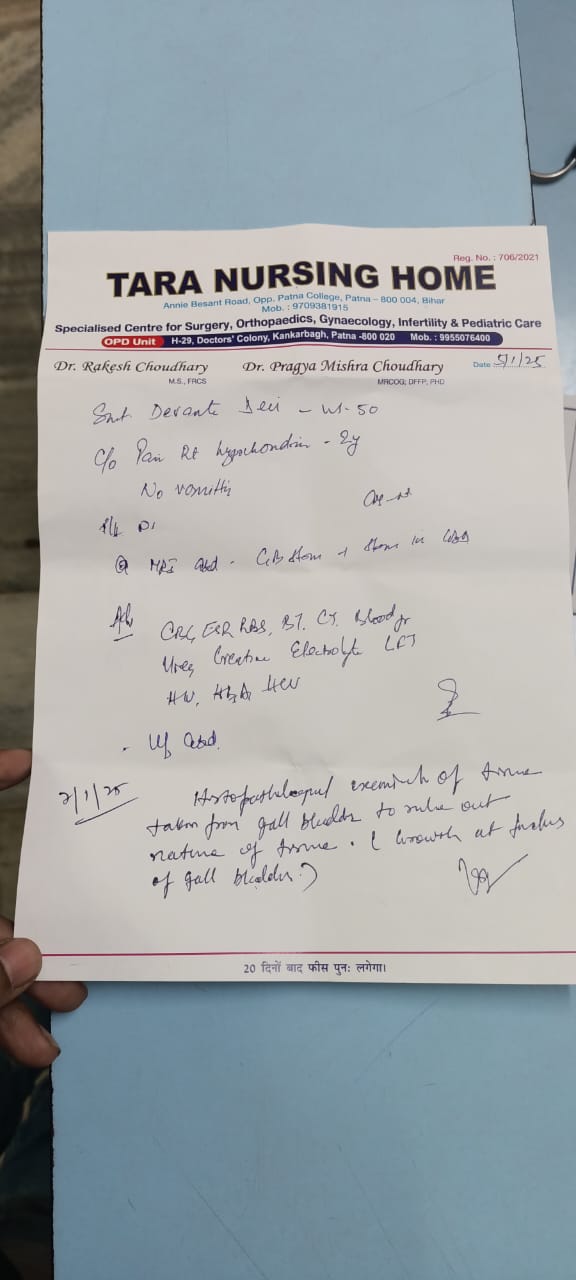 Reg. No. : 706/2021
TARA NURSING HOME
Annie Besant Road, Opp. Patna College, Patna – 800 004, Bihar
Mob. : 9709381915
Specialised Centre for Surgery, Orthopaedics, Gynaecology, Infertility & Pediatric Care
OPD Unit H-29, Doctors' Colony, Kankarbagh, Patna -800 020 Mob. : 9955076400
Dr. Rakesh Choudhary Dr. Pragya Mishra Choudhary Date 5/1/25
M.S., FRCS MRCOG, DFFP, PHD
Smt Devante Devi - 50
c/o Pain Rt hypochondrium - 2y
No vomitting
MRI abd - GB stone + stone in
Adv
CBC, ESR, RBS, BT, CT, Blood gr
Urea Creatine Electrolyte LFT
HIV, HCV
abd
/1/25 Histopathological of tissue
taken from gall bladder to rule out
nature of tissue. ( Growth at fundus
of gall bladder )
20 दिनों बाद फीस पुनः लगेगा।